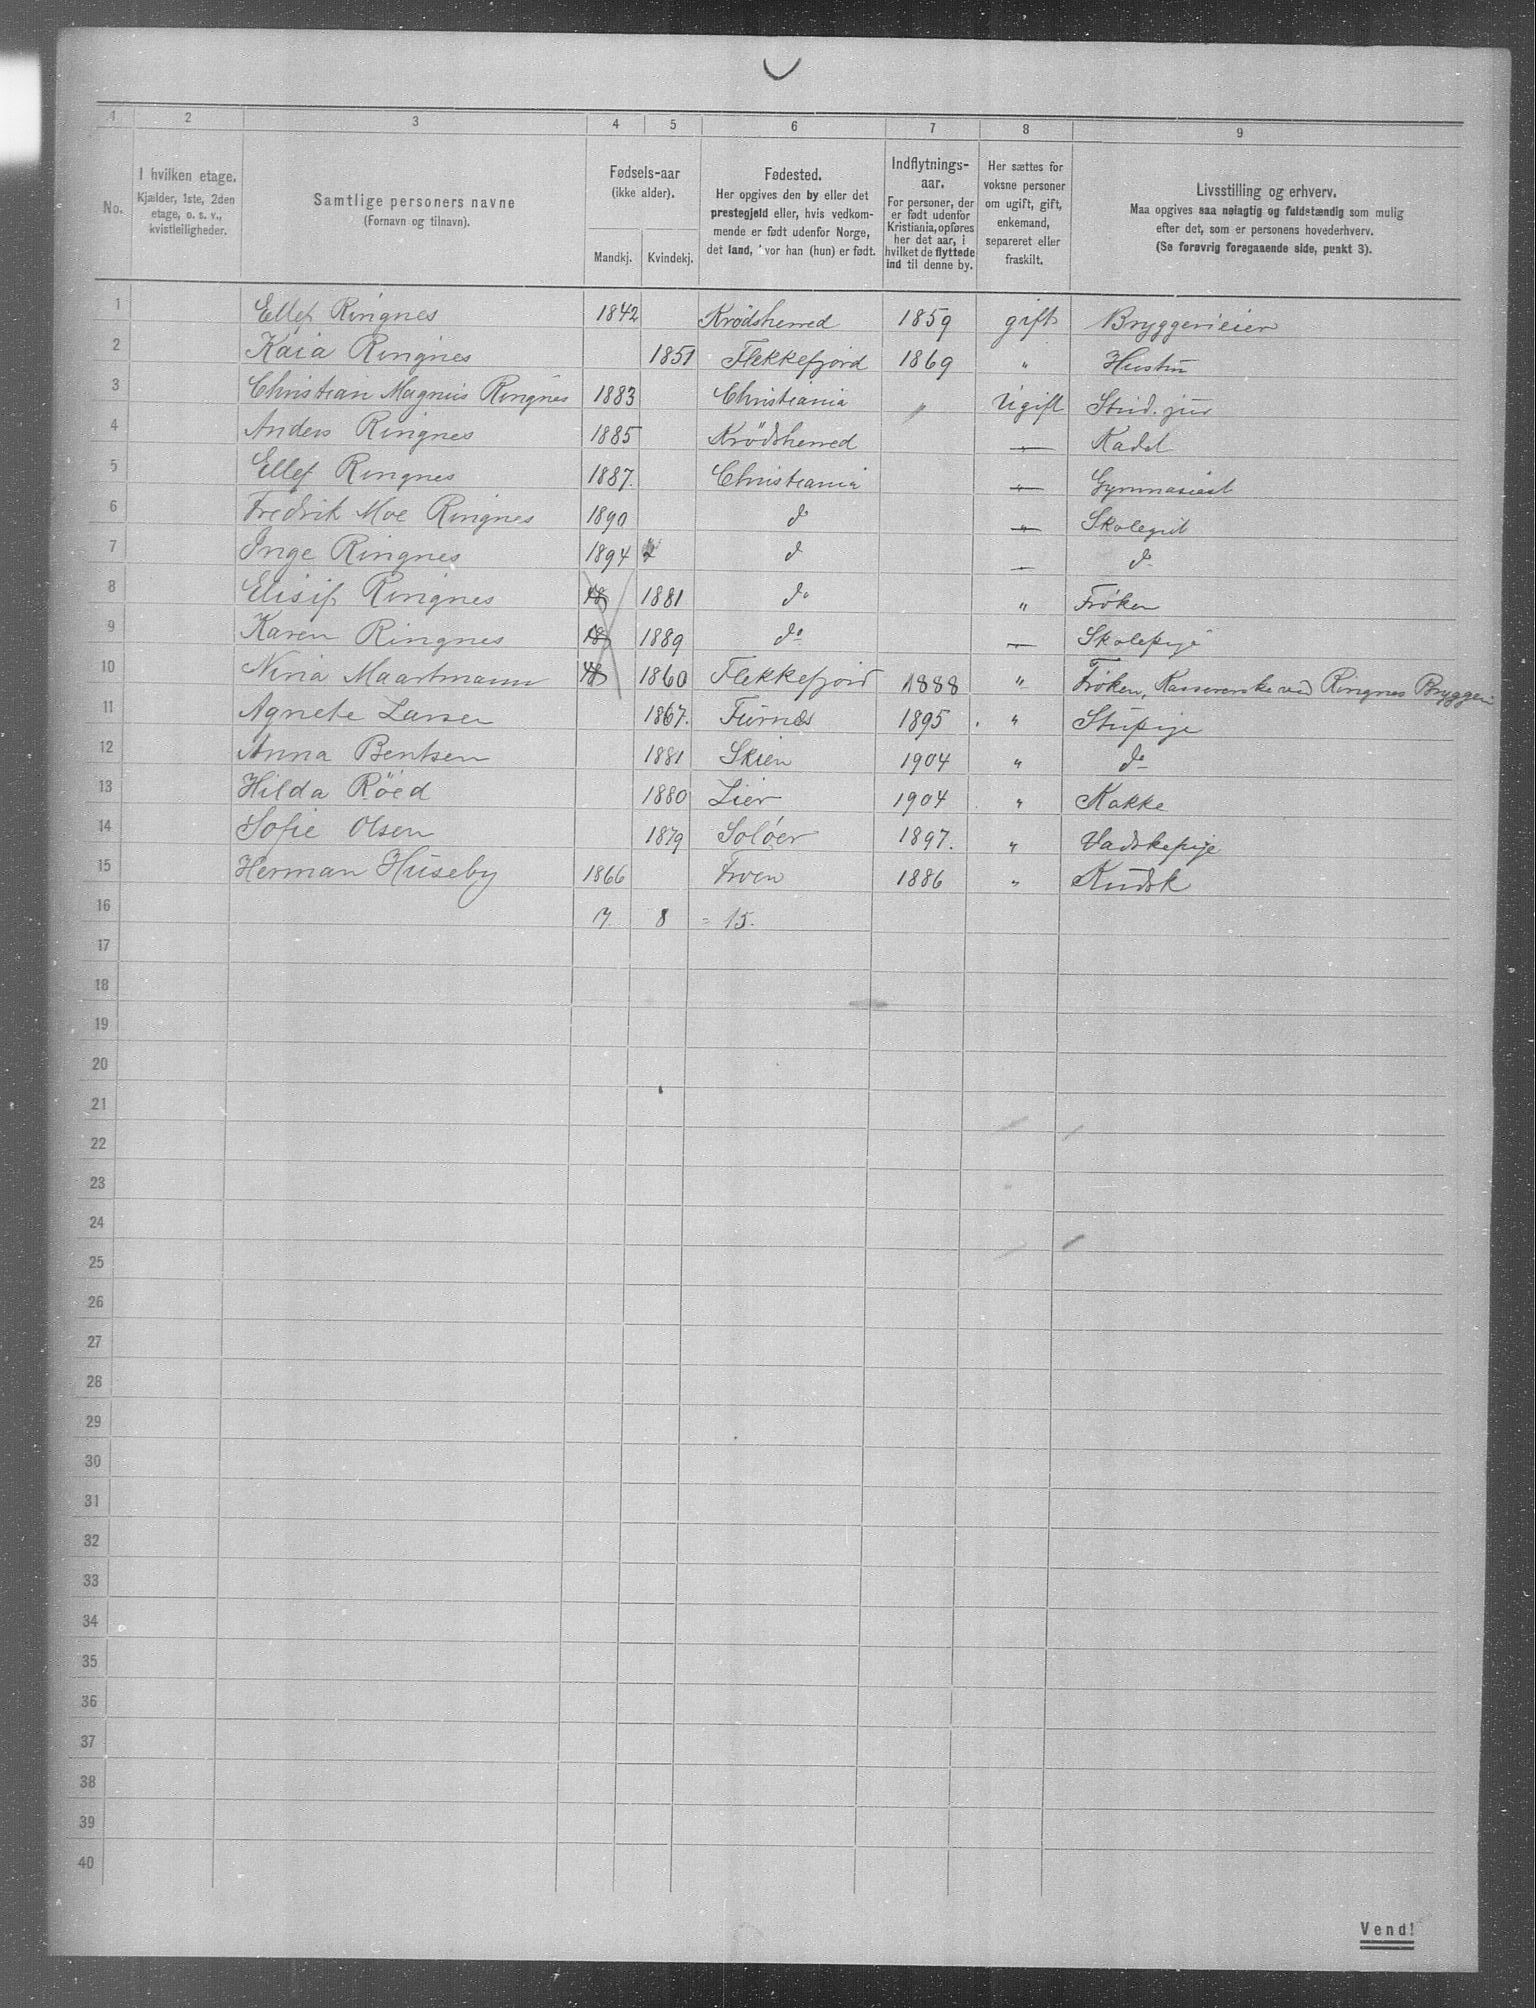 1 2 3 4 5 6 7 8 9
No.
I hvilken etage.
Kjælder, 1ste, 2den
etage, o. s. v.,
kvistleiligheder.
Samtlige personers navne
(Fornavn og tilnavn).
Fødsels-aar
(ikke alder).
Mandkj. Kvindekj.
Fødested.
Her opgives den by eller det
prestegjeld eller, hvis vedkom-
mende er født udenfor Norge,
det land, hvor han (hun) er født.
Indflytnings-
aar.
For personer, der
er født udenfor
Kristiania, opføres
her det aar, i
hvilket de flyttede
ind til denne by.
Her sættes for
voksne personer
om ugift, gift,
enkemand,
separeret eller
fraskilt.
Livsstilling og erhverv.
Maa opgives saa nøiagtig og fuldstændig som mulig
efter det, som er personens hovederhverv.
(Se forøvrig foregaaende side, punkt 3).
1 Ellef Ringnes 1842 Krødsherred 1859 gift Bryggerieier
2 Kaia Ringnes 1851 Flekkefjord 1869 " Hustru
3 Christian Magnus Ringnes 1883 Christiania " Ugift Stud. jur
4 Anders Ringnes 1885 Krödsherred " Kadet
5 Ellef Ringnes 1887. Christiania " Gymnasiast
6 Fredrik Moe Ringnes 1890 do " Skolegut
7 Inge Ringnes 1894 do " do
8 Elisif Ringnes 18 1881 do " Frøken
9 Karen Ringnes 18 1889 do " Skolepige
10 Nina Maartmann 18 1860 Flekkefjord 1888 " Frøken, Kassererske ved Ringnes Bryggeri
11 Agnete Larsen 1867. Furnæs 1895 " Stupige
12 Anna Bentsen 1881 Skien 1904 " do
13 Hilda Röed 1880 Lier 1904 " Kokke
14 Sofie Olsen 1879 Solöer 1897. " Vadskepige
15 Herman Huseby 1866 Froen 1886 " Kudsk
16 7. 8 = 15.
17
18
19
20
21
22
23
24
25
26
27
28
29
30
31
32
33
34
35
36
37
38
39
40
Vend!